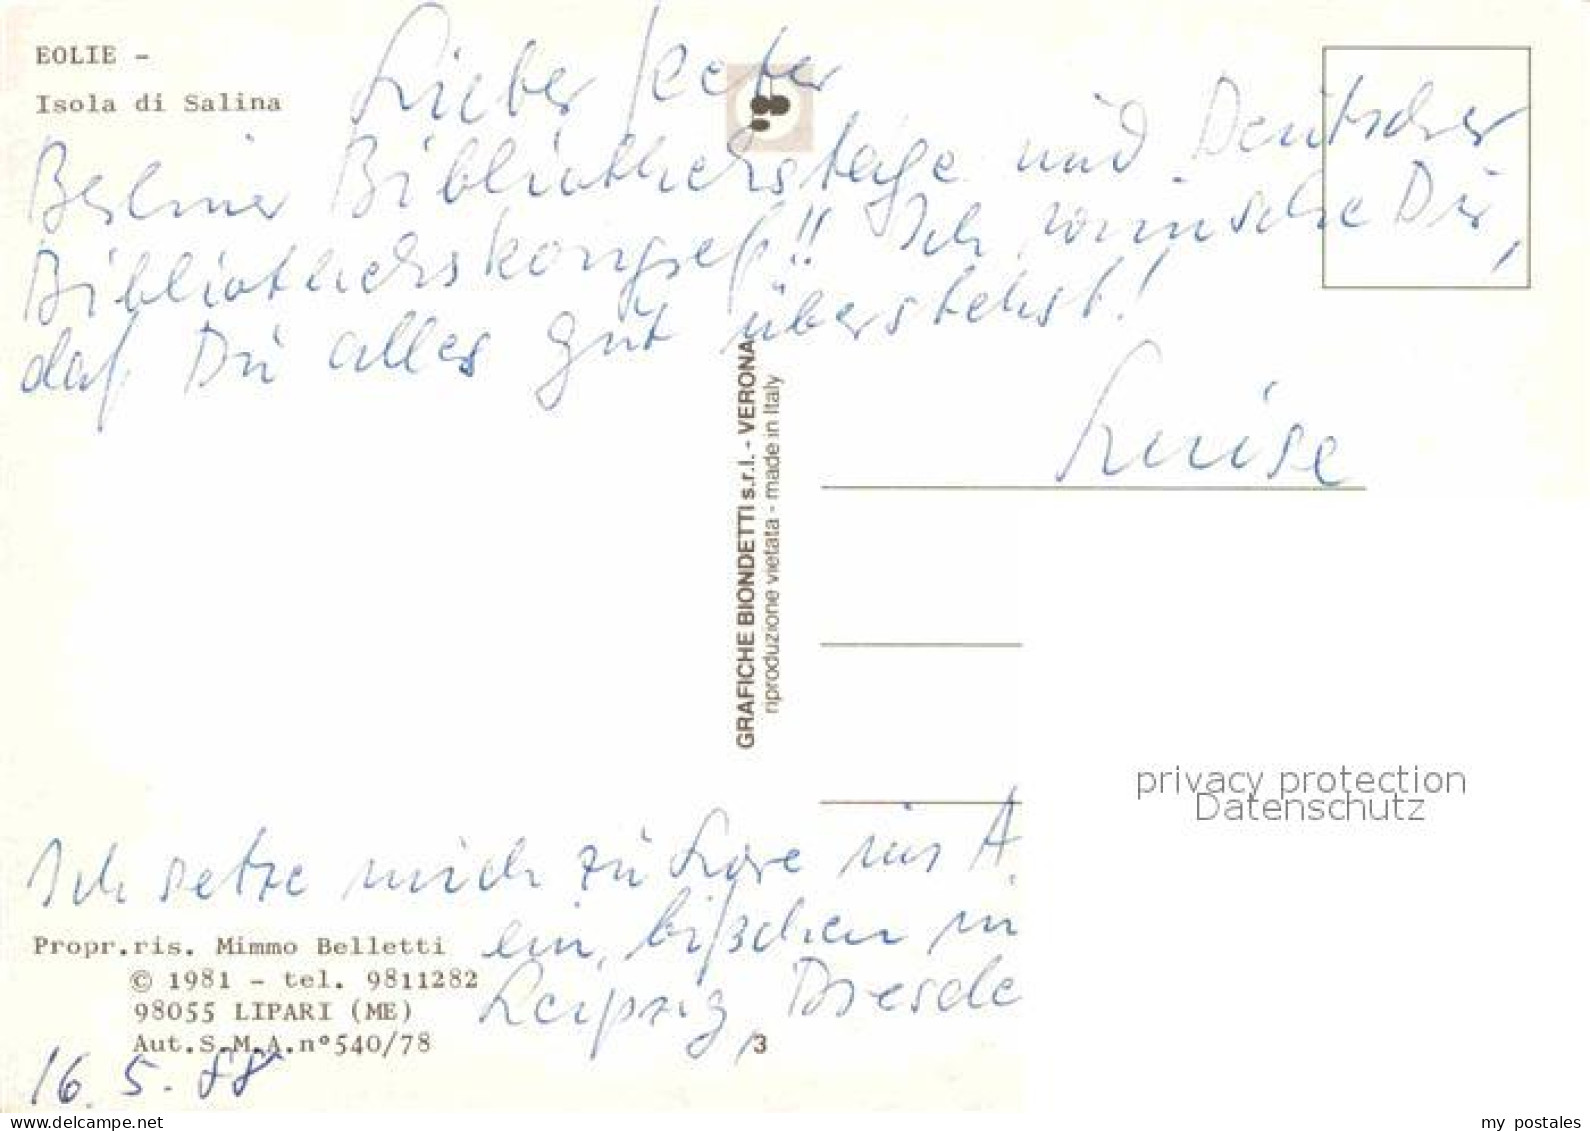 EOLIE -
Isola di Salina
Lieber Peter
Berliner Bibliothekstage und Deutscher
Bibliothekskongreß!! Ich wünsche Dir,
daß Du alles gut überstehst!
Luise
GRAFICHE BIONDETTI s.r.l. - VERONA
riproduzione vietata - made in Italy
privacy protection
Datenschutz
Ich setze mich zu Lore ins A
ein bißchen in
Leipzig, Dresde
Propr.ris. Mimmo Belletti
© 1981 - tel. 9811282
98055 LIPARI (ME)
Aut.S.M.A.n°540/78
3
16.5.88
my postales
www.delcampe.net